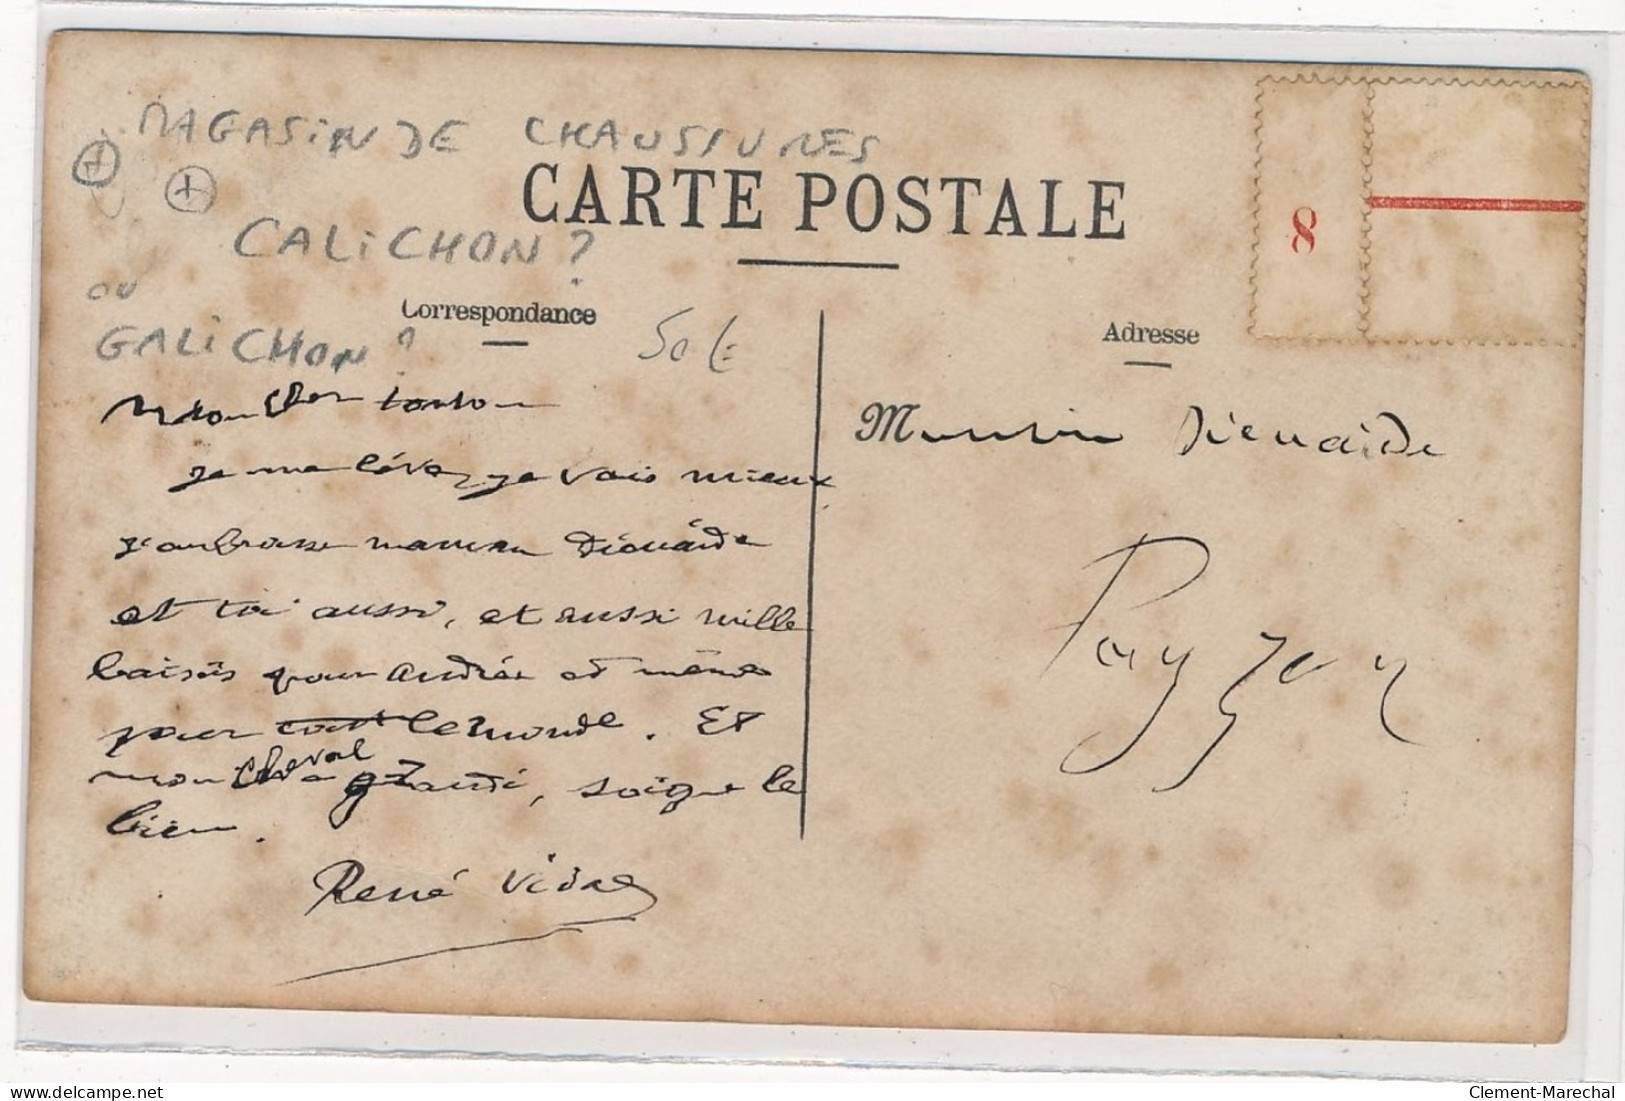 MAGASiN DE CHAUSSURES
CARTE POSTALE
CALiCHON ?
ou
GALiCHON ?
Correspondance
50 €
8
Adresse
Mon cher tonton
je me lève, je vais mieux
j'embrasse maman Dieuaide
et toi aussi, et aussi mille
baisés pour Andrée et même
pour tout le monde. Et
mon cheval grandi, soigne le
bien.
René Vidal
Monsieur Dieuaide
delcampe.net
Clement-Marechal